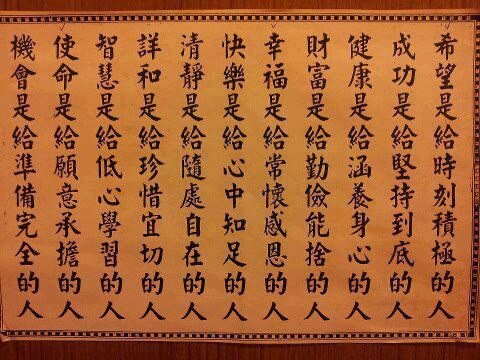 希望是給時刻積極的人
成功是給堅持到底的人
健康是給涵養身心的人
財富是給勤儉能捨的人
幸福是給常懷感恩的人
快樂是給心中知足的人
清靜是給隨處自在的人
詳和是給珍惜宜切的人
智慧是給低心學習的人
使命是給願意承擔的人
機會是給準備完全的人